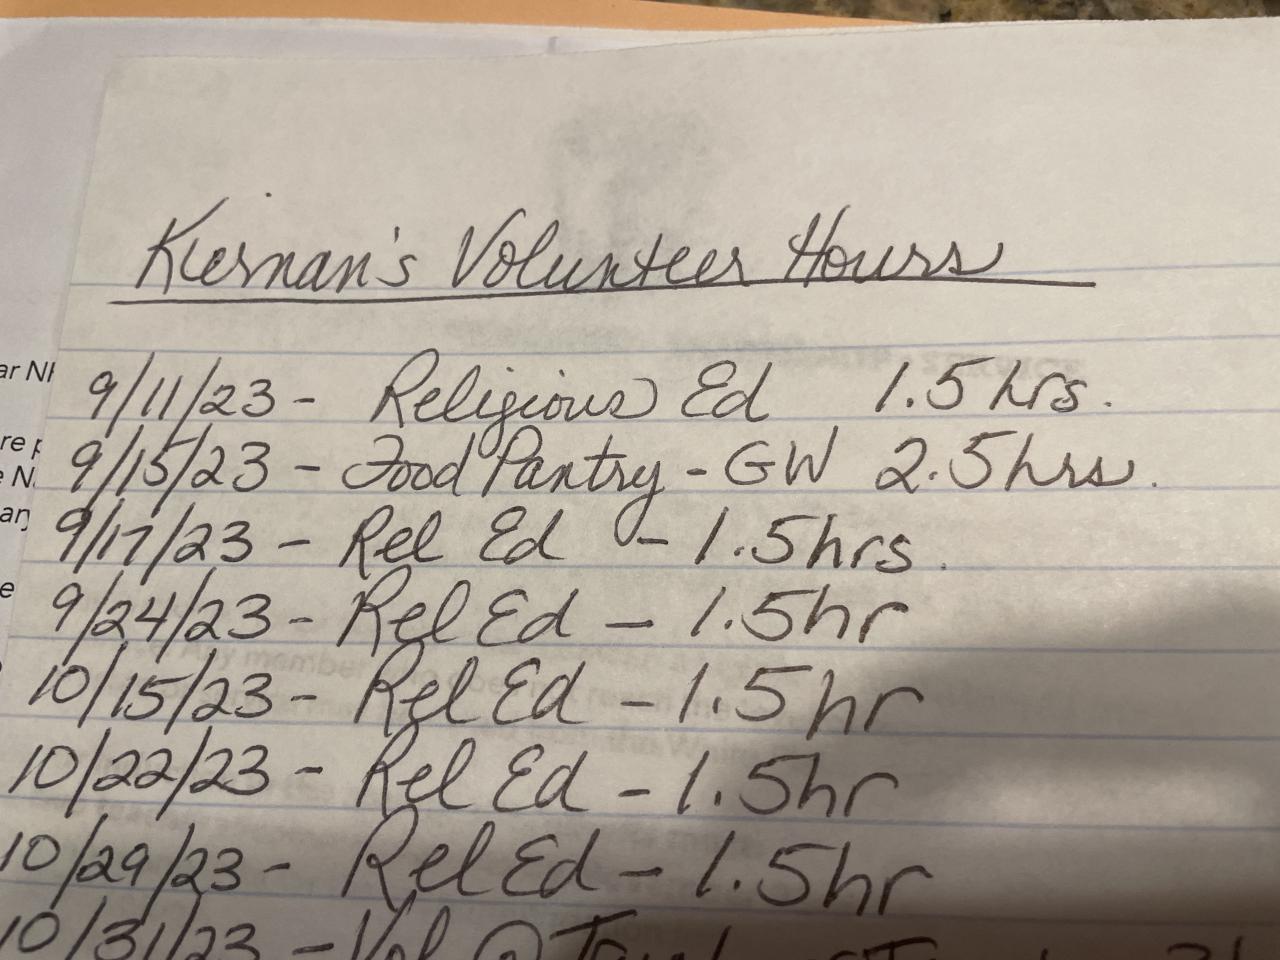 Kiernan's Volunteer Hours
9/11/23 - Religious Ed 1.5 hrs.
9/15/23 - Food Pantry - GW 2.5 hrs.
9/17/23 - Rel Ed - 1.5 hrs.
9/24/23 - Rel Ed - 1.5 hr
10/15/23 - Rel Ed - 1.5 hr
10/22/23 - Rel Ed - 1.5 hr
10/29/23 - Rel Ed - 1.5 hr
10/31/23 - Vol @
ar NH
re p
e N
any
e